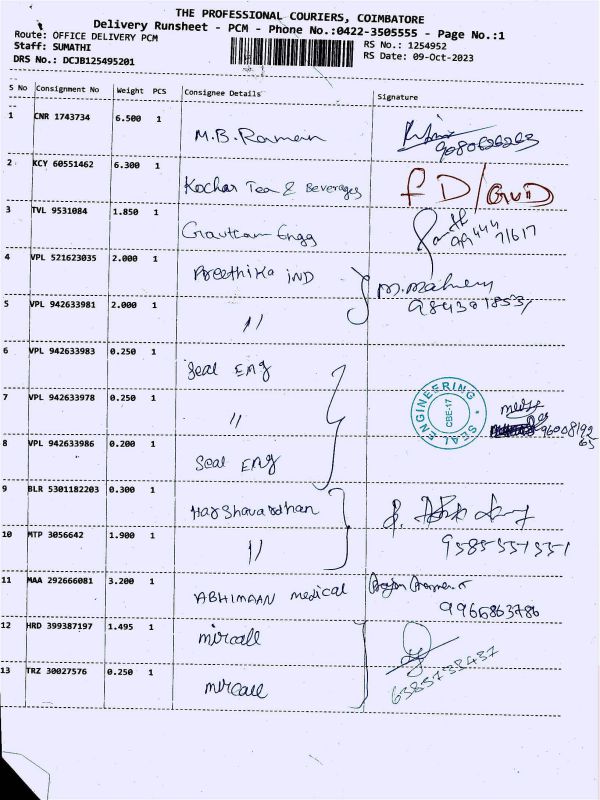 THE PROFESSIONAL COURIERS, COIMBATORE
Delivery Runsheet - PCM - Phone No.:0422-3505555 - Page No.:1
Route: OFFICE DELIVERY PCM
RS No.: 1254952
Staff: SUMATHI
RS Date: 09-Oct-2023
DRS No.: DCJB125495201
S No Consignment No Weight PCS Consignee Details Signature
1 CNR 1743734 6.500 1 M.B. Raman
9080626263
2 KCY 60551462 6.300 1 Kochar Tea & Beverages FD/
3 TVL 9531084 1.850 1 Gautham Engg
4 VPL 521623035 2.000 1 Preethika IND
5 VPL 942633981 2.000 1 //
6 VPL 942633983 0.250 1 Seal Eng
7 VPL 942633978 0.250 1 //
SEAL ENGINEERING
CBE-17
8 VPL 942633986 0.200 1 Seal Eng
9 BLR 5301182203 0.300 1 Harshavardhan
10 MTP 3056642 1.900 1 //
9585551551
11 MAA 292666081 3.200 1 ABHIMAAN medical
9966863786
12 HRD 399387197 1.495 1 miracall
13 TRZ 30027576 0.250 1 miracall
6385733437